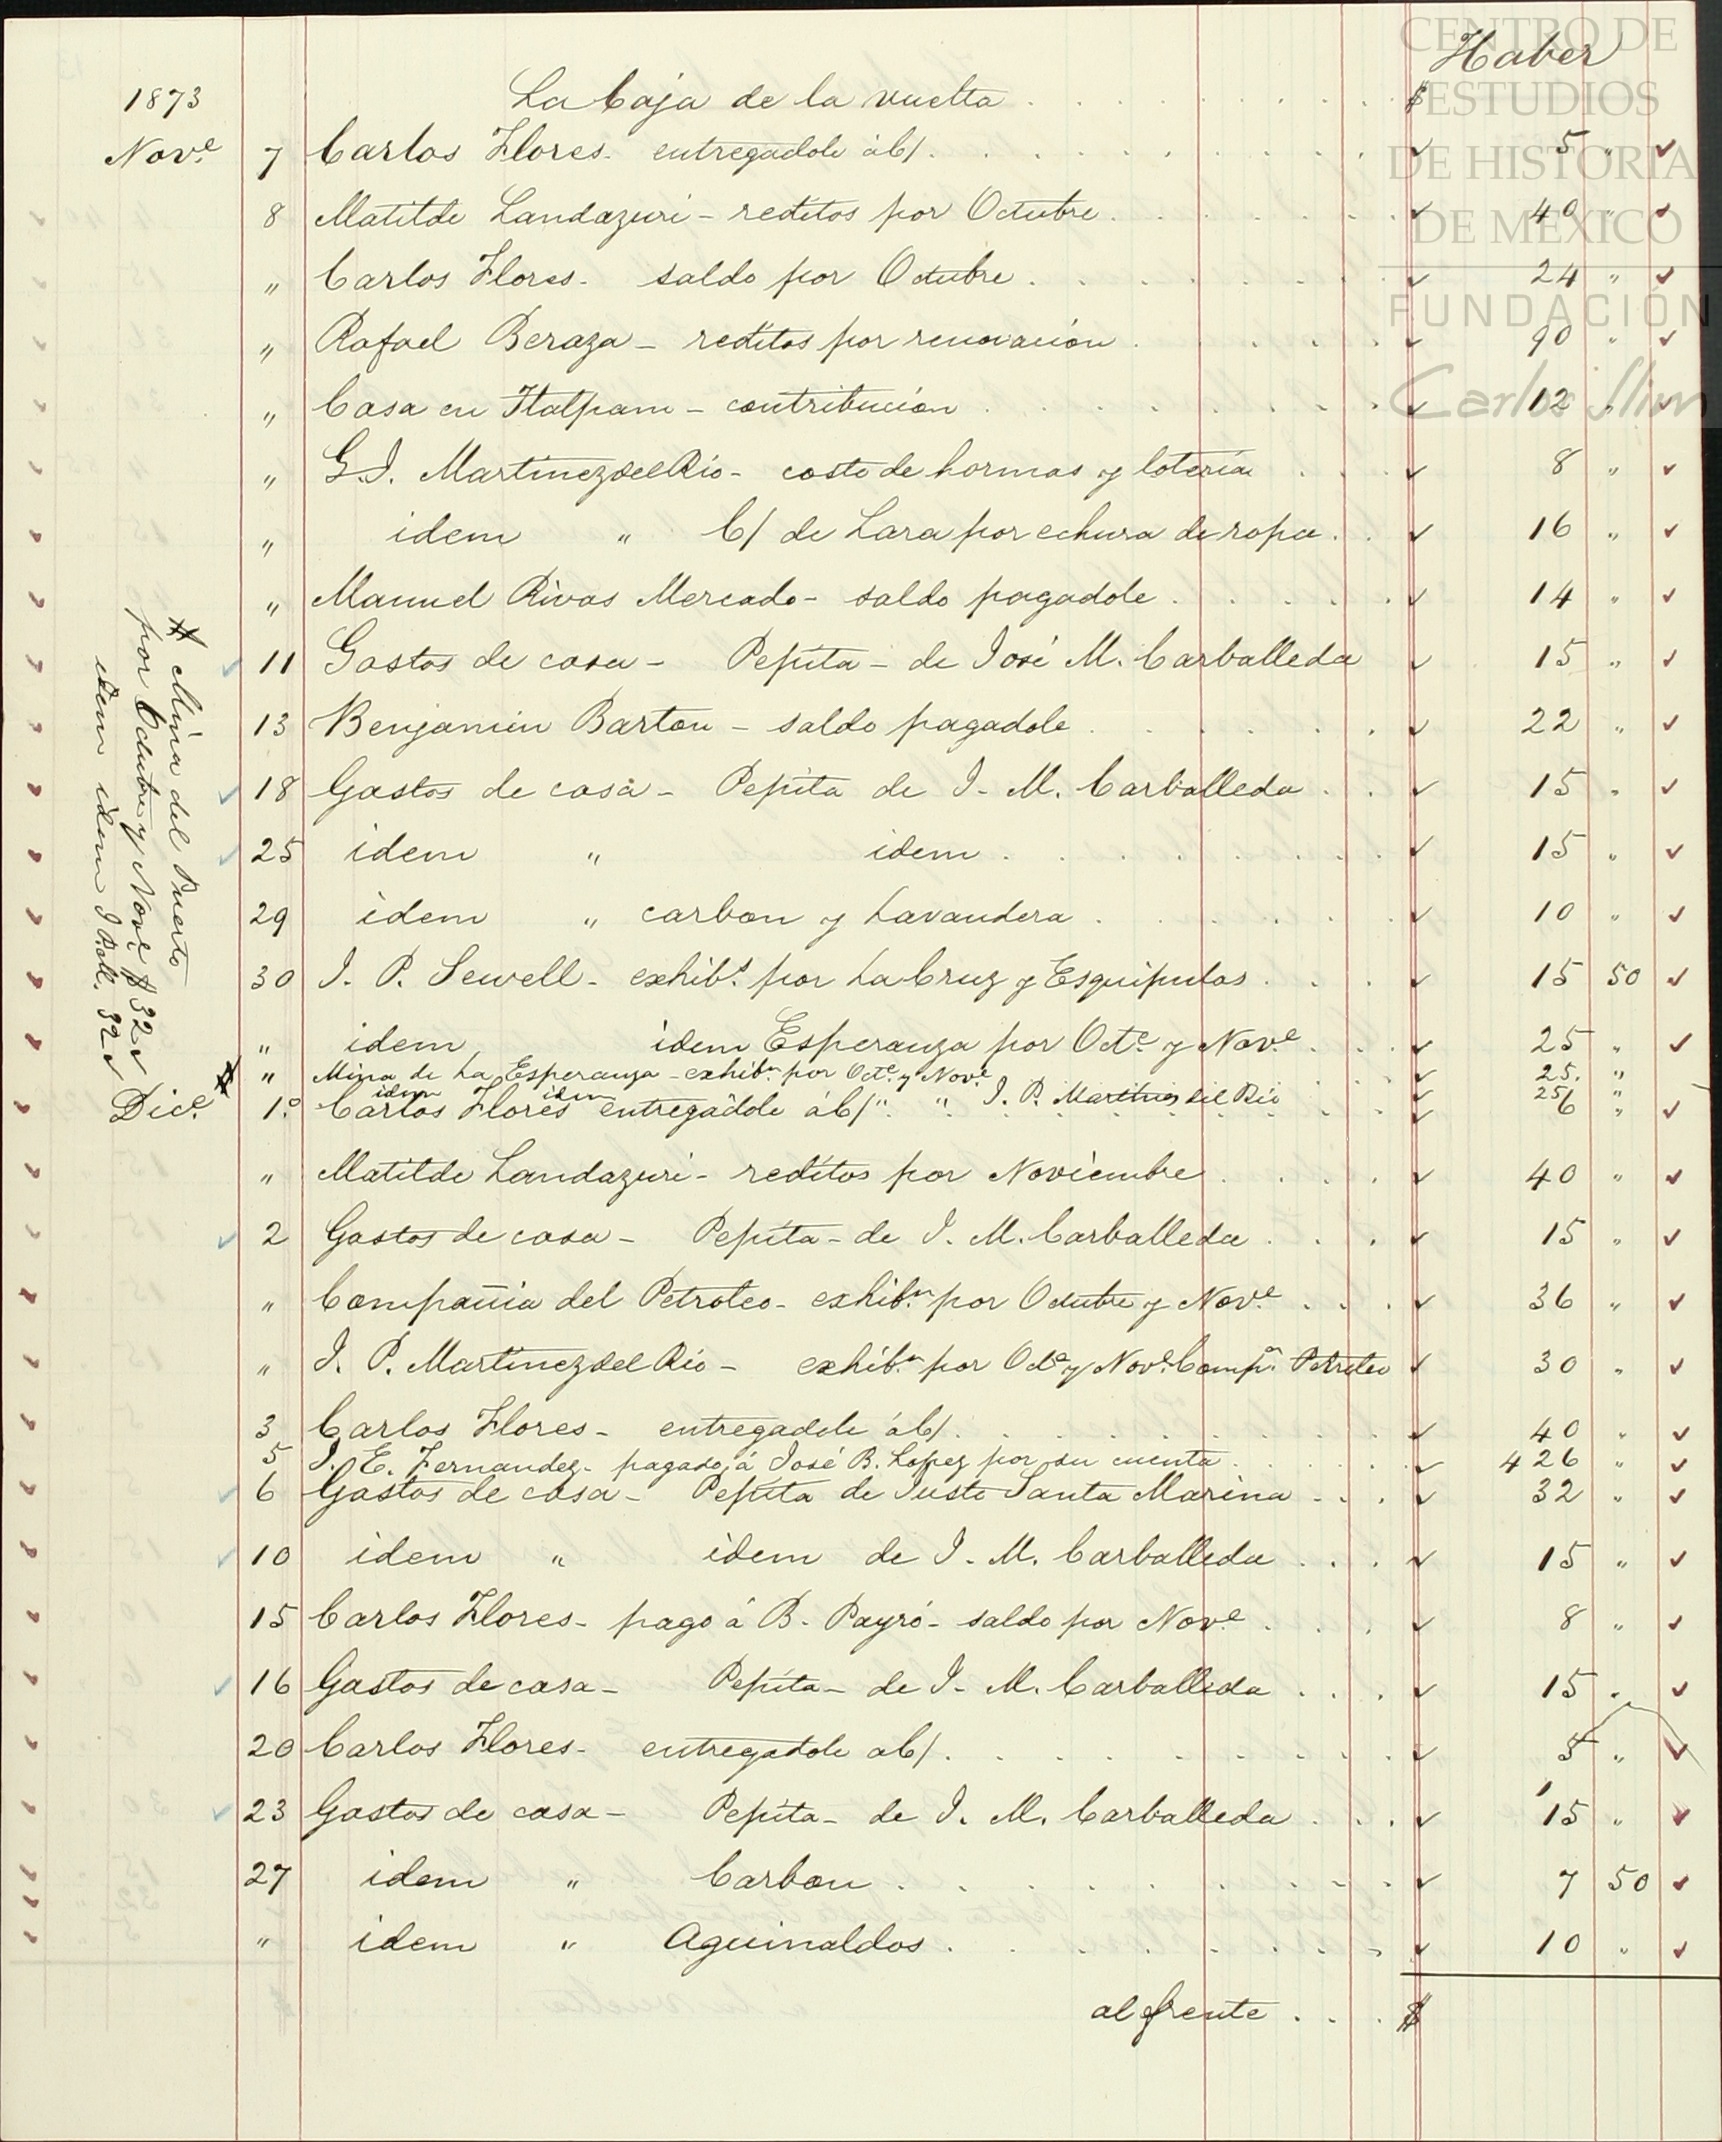 CENTRO DE
ESTUDIOS
DE HISTORIA
DE MEXICO
FUNDACIÓN
Carlos Slim
Haber
1873 La Caja de la vuelta $
Nov.e 7 Carlos Flores - entregadole á c/ 5 "
8 Matilde Landazuri - reditos por Octubre 40 "
" Carlos Flores - saldo por Octubre 24 "
" Rafael Beraza - reditos por renovación 90 "
" Casa en Tlalpam - contribución 12 "
" G. I. Martinez del Rio - costo de hormas y lotería 8 "
" idem " C/ de Lara por echura de ropa 16 "
" Manuel Rivas Mercado - saldo pagadole 14 "
11 Gastos de casa - Pepita - de José M. Carballeda 15 "
13 Benjamin Barton - saldo pagadole 22 "
18 Gastos de casa - Pepita de I. M. Carballeda 15 "
25 idem " idem 15 "
29 idem " carbon y Lavandera 10 "
30 I. P. Sewell - exhib.s por La Cruz y Esquipulas 15 50
" idem idem Esperanza por Oct.e y Nov.e 25 "
" Mina de La Esperanza - exhib.n por Oct.e y Nov.e 25 "
idem idem " " I. P. Martinez del Rio 25 "
Dic.e 1.o Carlos Flores entregadole á c/ 6 "
" Matilde Landazuri - reditos por Noviembre 40 "
2 Gastos de casa - Pepita - de I. M. Carballeda 15 "
" Compañia del Petroleo - exhib.n por Octubre y Nov.e 36 "
" I. P. Martinez del Rio - exhib.n por Oct.e y Nov.e Comp.a Petroleo 30 "
3 Carlos Flores - entregadole á c/ 40 "
5 I. E. Fernandez - pagado á José B. Lopez por su cuenta 426 "
6 Gastos de casa - Pepita de Justo Santa Marina 32 "
10 idem " idem de I. M. Carballeda 15 "
15 Carlos Flores - pago á B. Payró - saldo por Nov.e 8 "
16 Gastos de casa - Pepita - de I. M. Carballeda 15 "
20 Carlos Flores - entregadole a c/ 5 "
23 Gastos de casa - Pepita - de I. M. Carballeda 15 "
27 idem " Carbon 7 50
" idem " Aguinaldos 10 "
al frente $
Mina del Puerto
por Octubre y Nov.e $ 32
idem idem 32